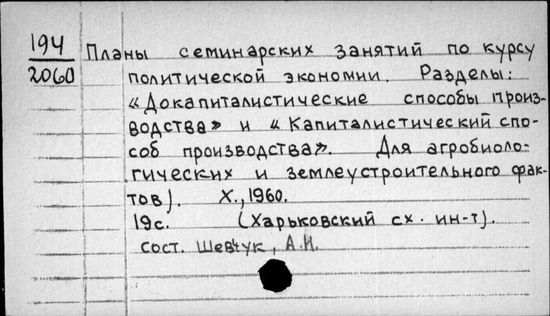 194
2060
Планы семинарских занятий по курсу
политической экономии. Разделы:
«Докапиталистические способы произ-
водства» и «Капиталистический спо-
соб производства». Для агробиоло-
гических и землеустроительного фак-
тов). Х., 1960.
19с. (Харьковский сх. ин-т).
сост. Шевчук, А.И.